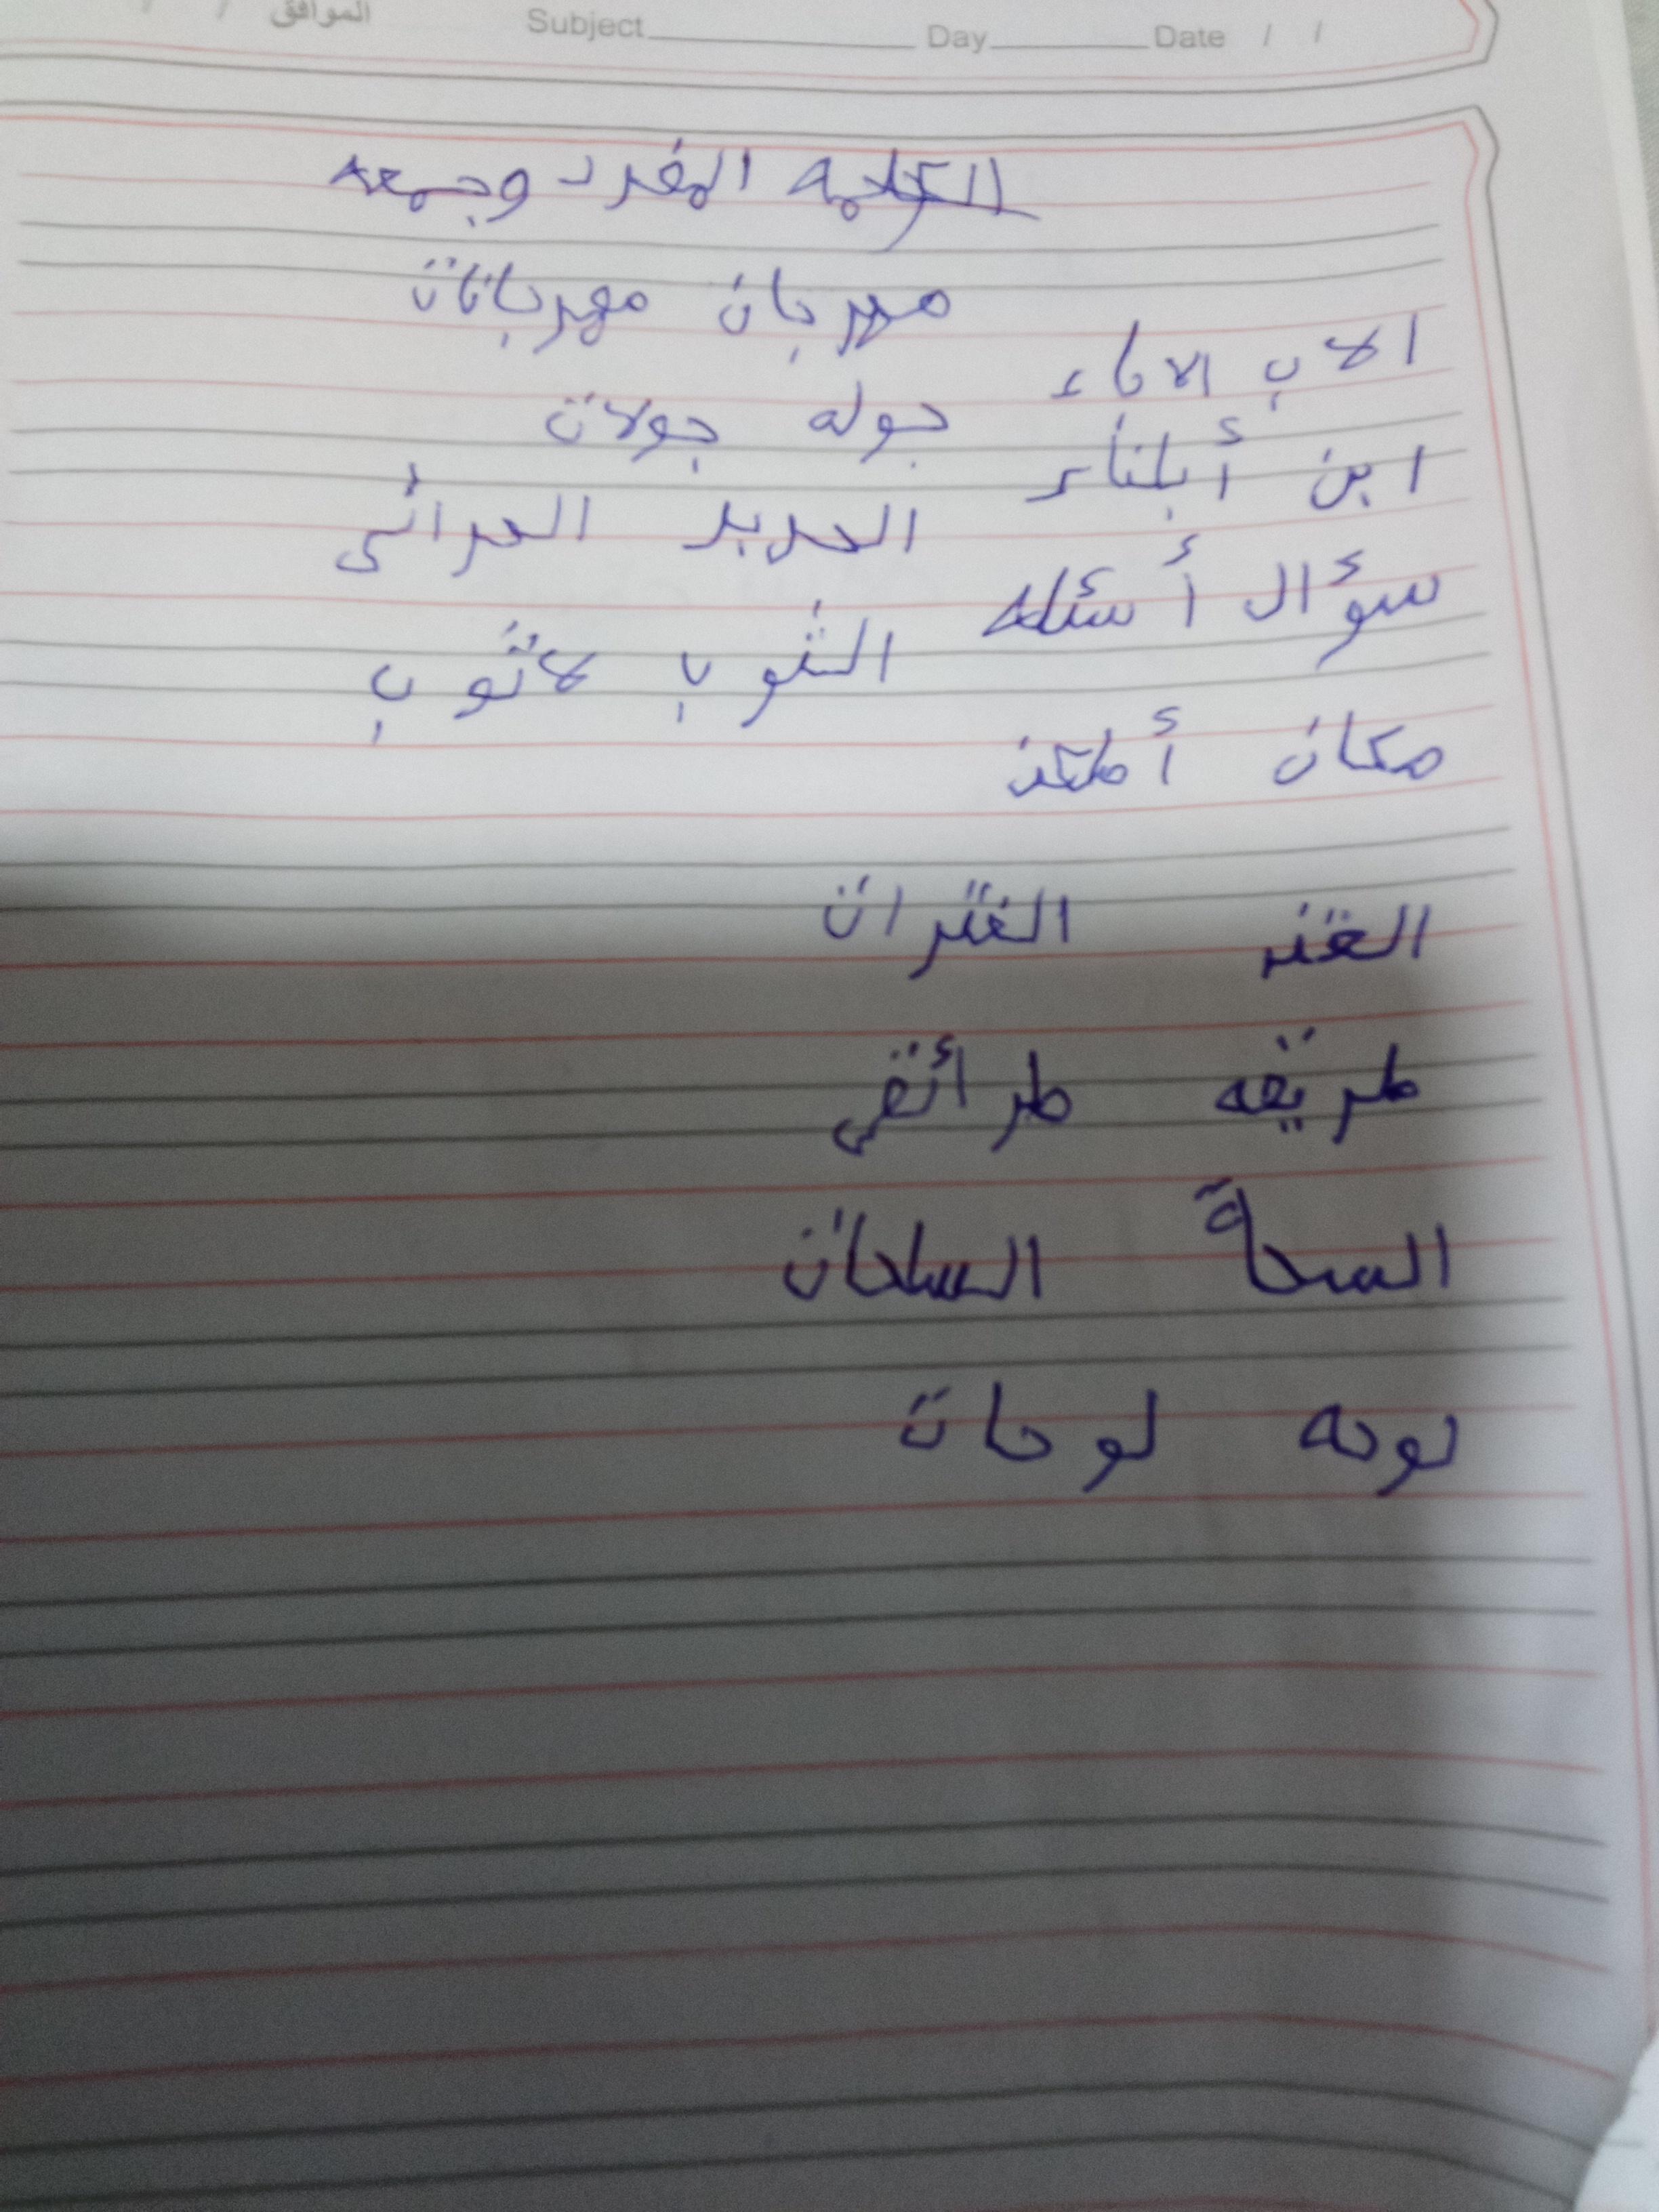 الموافق / / Subject Day Date / /
الكلامه المفرد وجمعه
مهربان مهربانات
الاب الاباء
جوله جولات
ابن أبناء
الحديد الحدائى
سؤال أسئله
الثوب لاثوب
مكان أمكن
الفتر الفترات
طريقه طرائقى
الساحات
لوحه لوحات